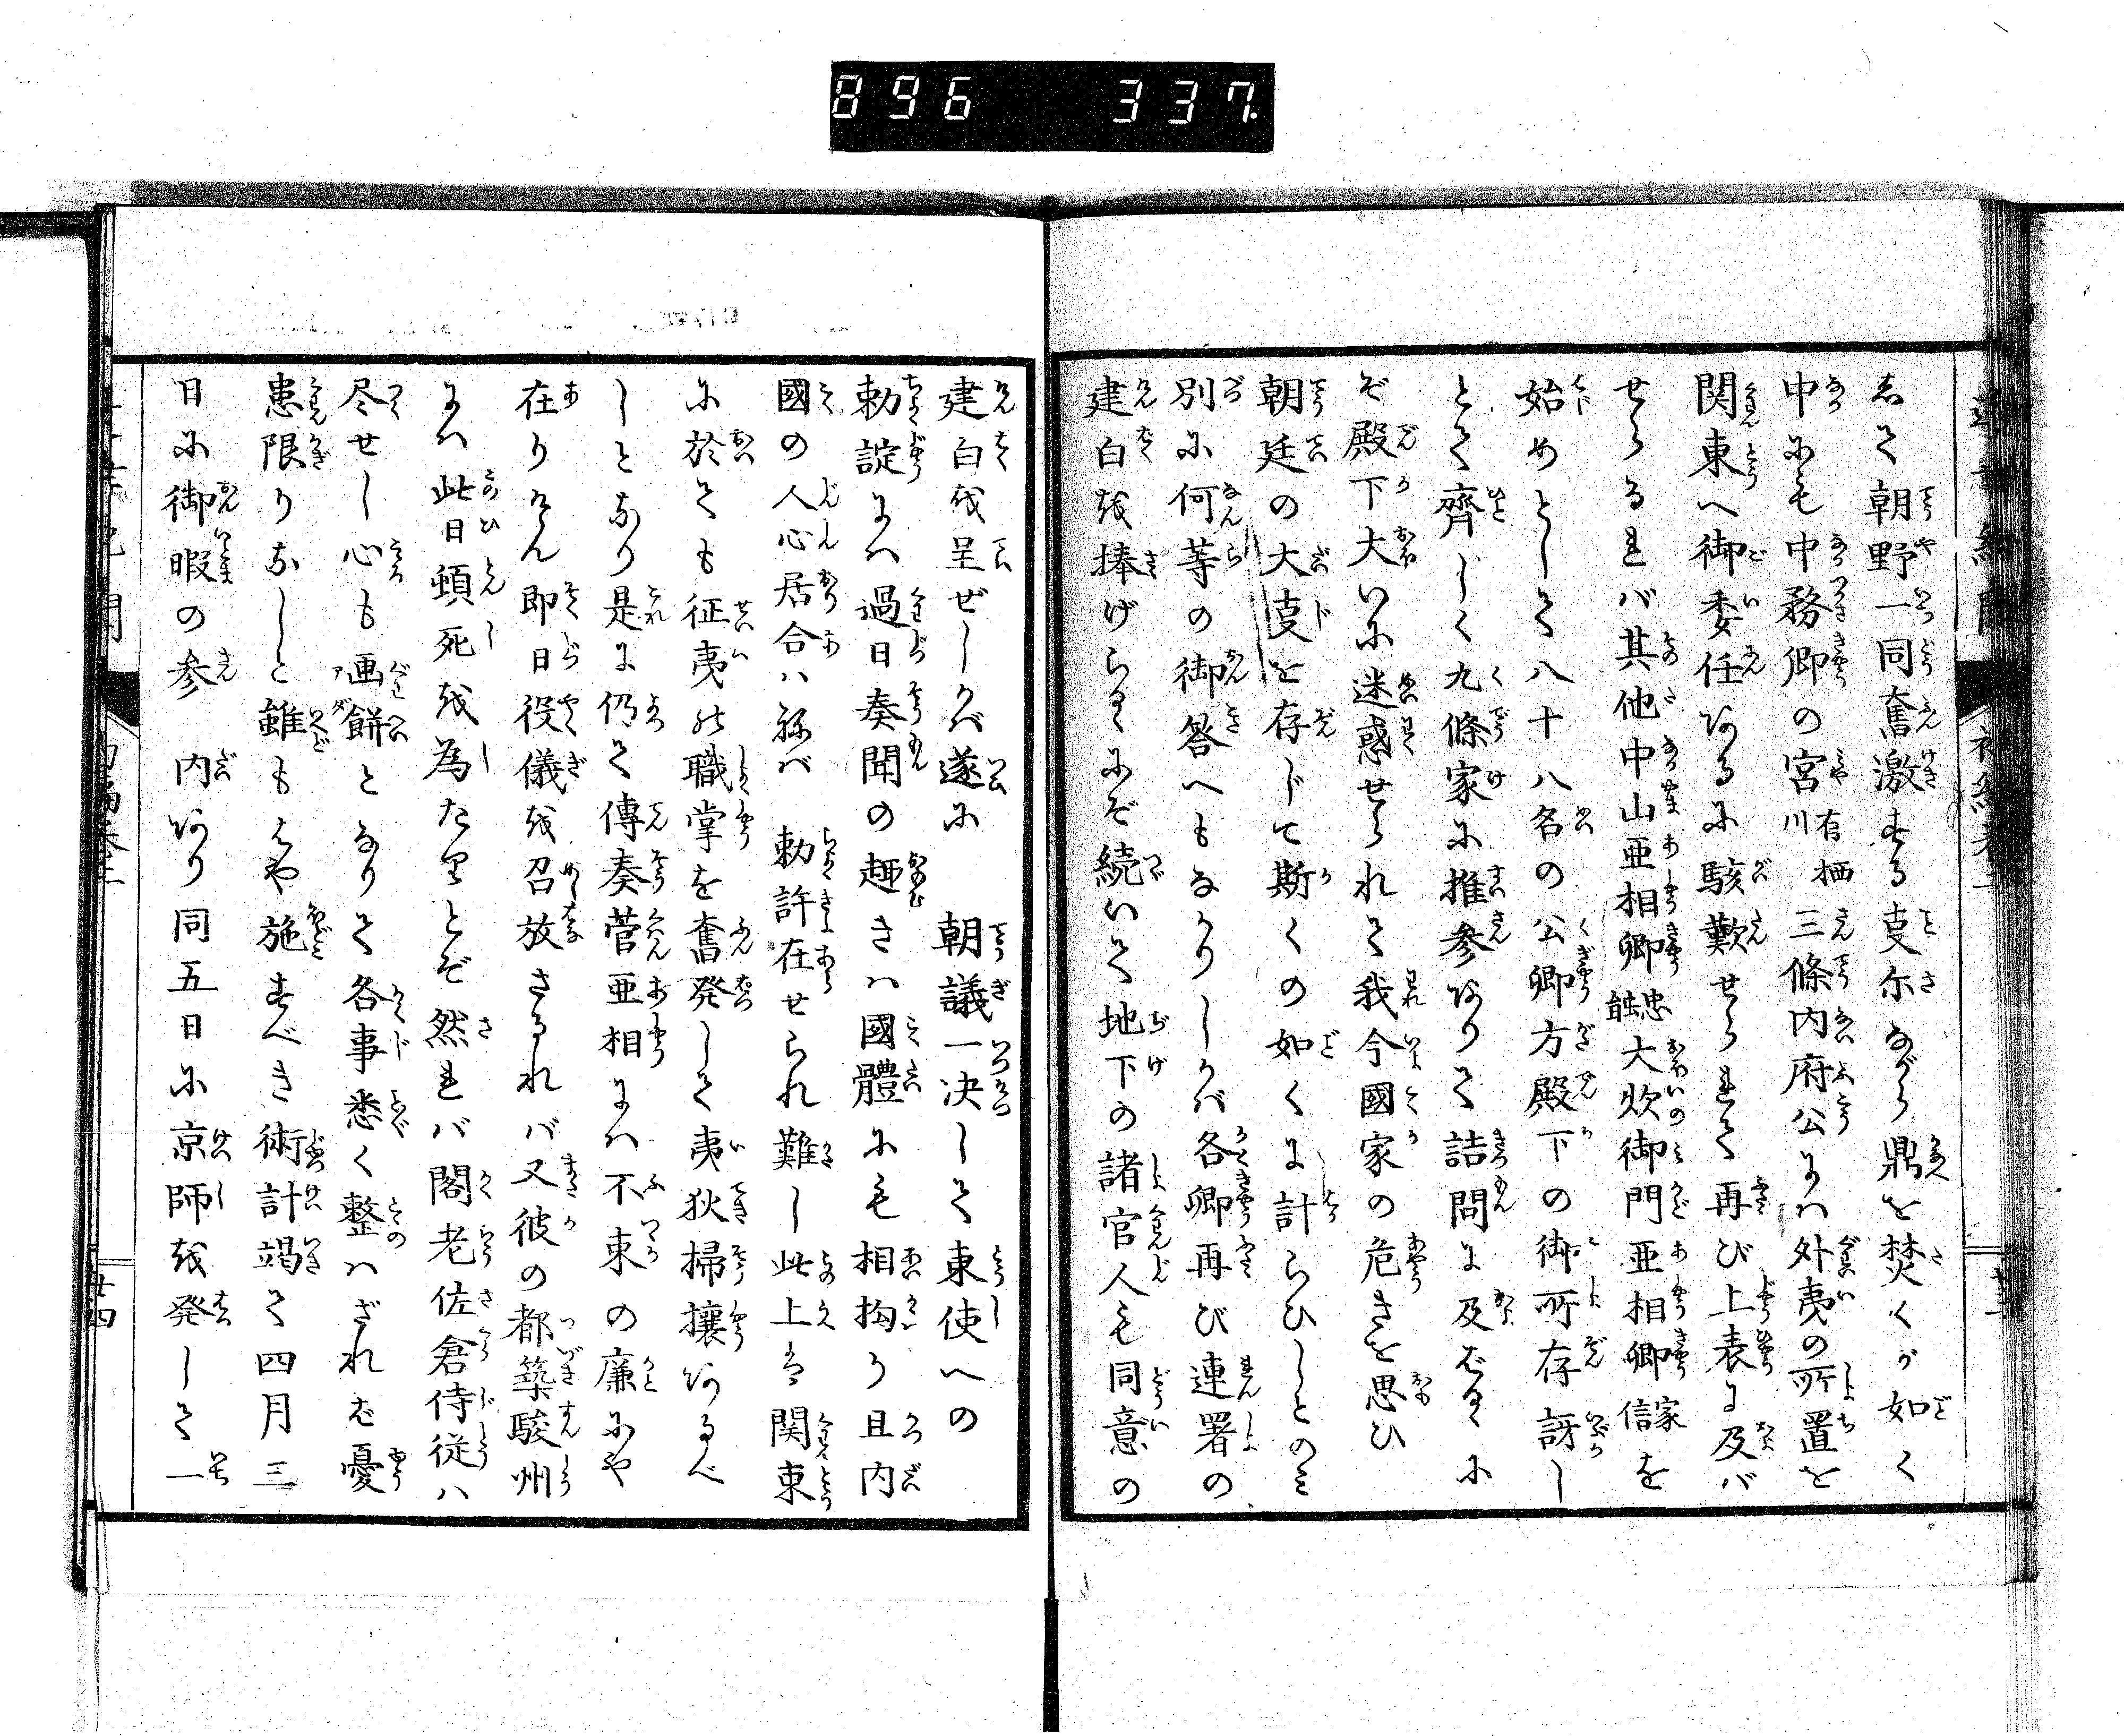 896 337
志て朝野一同奮激する事尓ながら鼎を焚くが如く
中にも中務卿の宮有栖川三條内府公には外夷の所置を
関東へ御委任あるに駭歎せられて再び上表に及バ
せらるれバ其他中山亜相卿忠能大炊御門亜相卿家信を
始めとして八十八名の公卿方殿下の御所存訝し
とて齊しく九條家に推参ありて詰問に及ばるゝに
ぞ殿下大いに迷惑せられて我今國家の危きを思ひ
朝廷の大事を存じて斯くの如くに計らひしとのミ
別に何等の御答へもなかりしかバ各卿再び連署の
建白を捧げらるゝにぞ続いて地下の諸官人も同意の
建白を呈ぜしかバ遂に 朝議一决して東使への
勅諚には過日奏聞の趣きハ國體にも相拘り且内
國の人心居合ハねバ 勅許在せられ難し此上は関東
に於ても征夷の職掌を奮発して夷狄掃攘あるべ
しとなり是に仍て傳奏菅亜相には不束の廉にや
在りけん即日役儀を召放さるれバ又彼の都築駿州
には此日頓死を為たりとぞ然れバ閣老佐倉侍従ハ
尽せし心も画餅となりて各事悉く整ハざれば憂
患限りなしと雖もはや施すべき術計竭て四月三
日に御暇の参 内あり同五日に京師を発して一
廿四